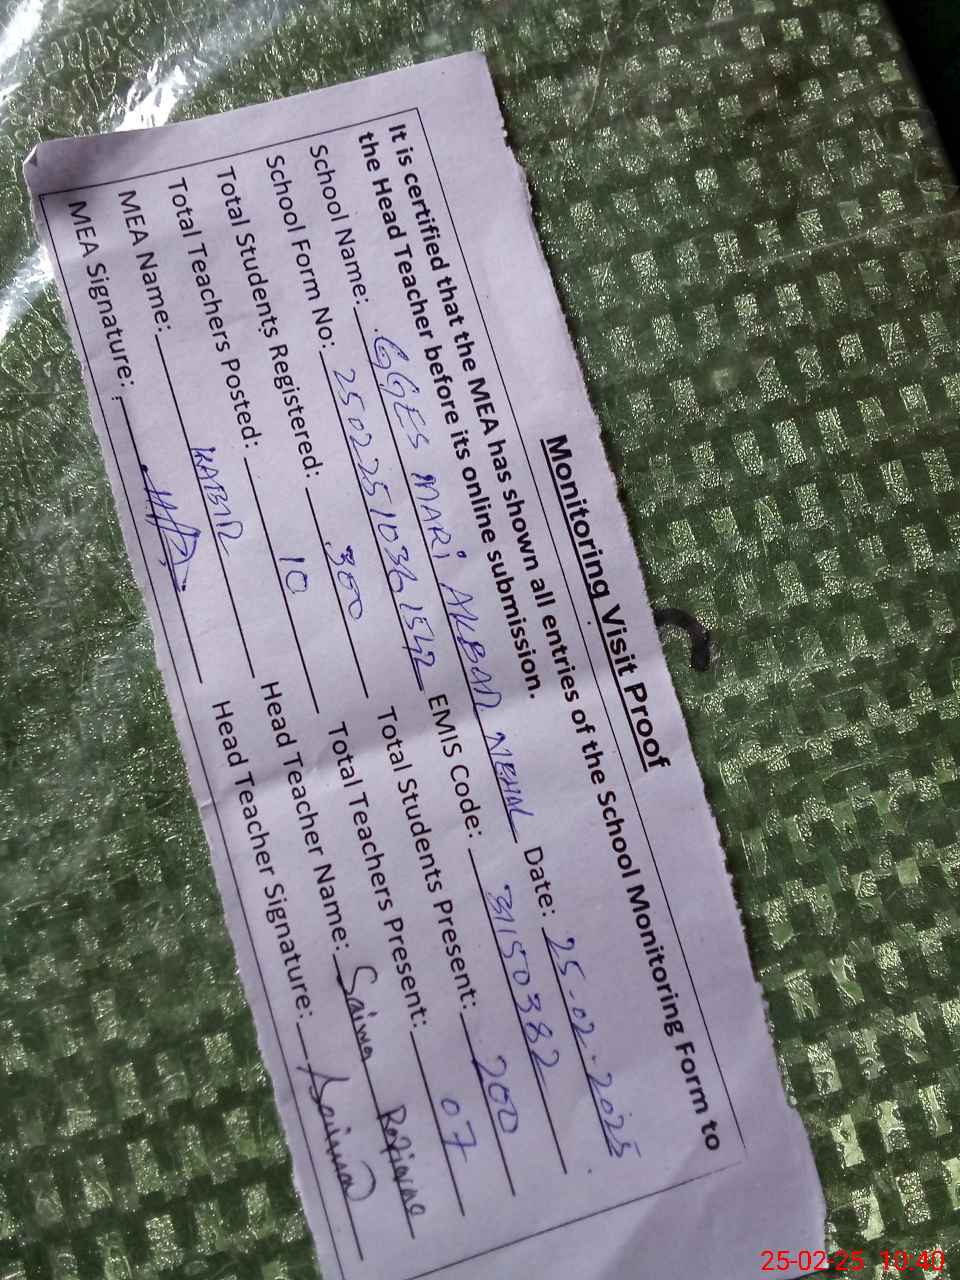 Monitoring Visit Proof
It is certified that the MEA has shown all entries of the School Monitoring Form to
the Head Teacher before its online submission.
School Name: GGES MARI AKBAR Date: 25-02-2025
School Form No: 25022510361542 EMIS Code: 31150382
Total Students Registered: 300 Total Students Present: 200
Total Teachers Posted: 10 Total Teachers Present: 07
MEA Name: KABIR Head Teacher Name: Saima
MEA Signature: Head Teacher Signature: Saima
25-02-25 10:40